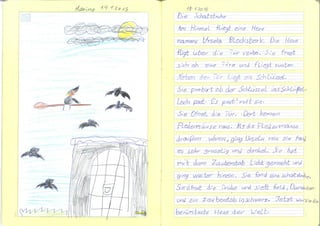 Marina 19.1.2015
19.1.2015
Die Schatztruhe
Am Himmel fliegt eine Hexe
namens Ursula Blocksberk. Die Hexe
fligt über die Tür vorbei. Sie fragt
sich ob eine Türe und fliegt runter.
Neben der Tür liegt ein Schlüssel.
Sie probirt ob der Schlüssel ins Schlüssel-
loch past. Es past
Sie öfnet die Tür. Dort kamen
Fledermäuse raus. Als die Fledermäuse
draußen waren, ging Ursula rein. Sie fand
es sehr gruselig und dunkel. Sie hat
mit dem Zauberstab Licht gemacht und
ging weiter hinein. Sie fand eine Schatztruhe.
Sie öfnet die Truhe und sieht Gold,
und ein Zauberstab Jetzt
berümteste Hexe der Welt.